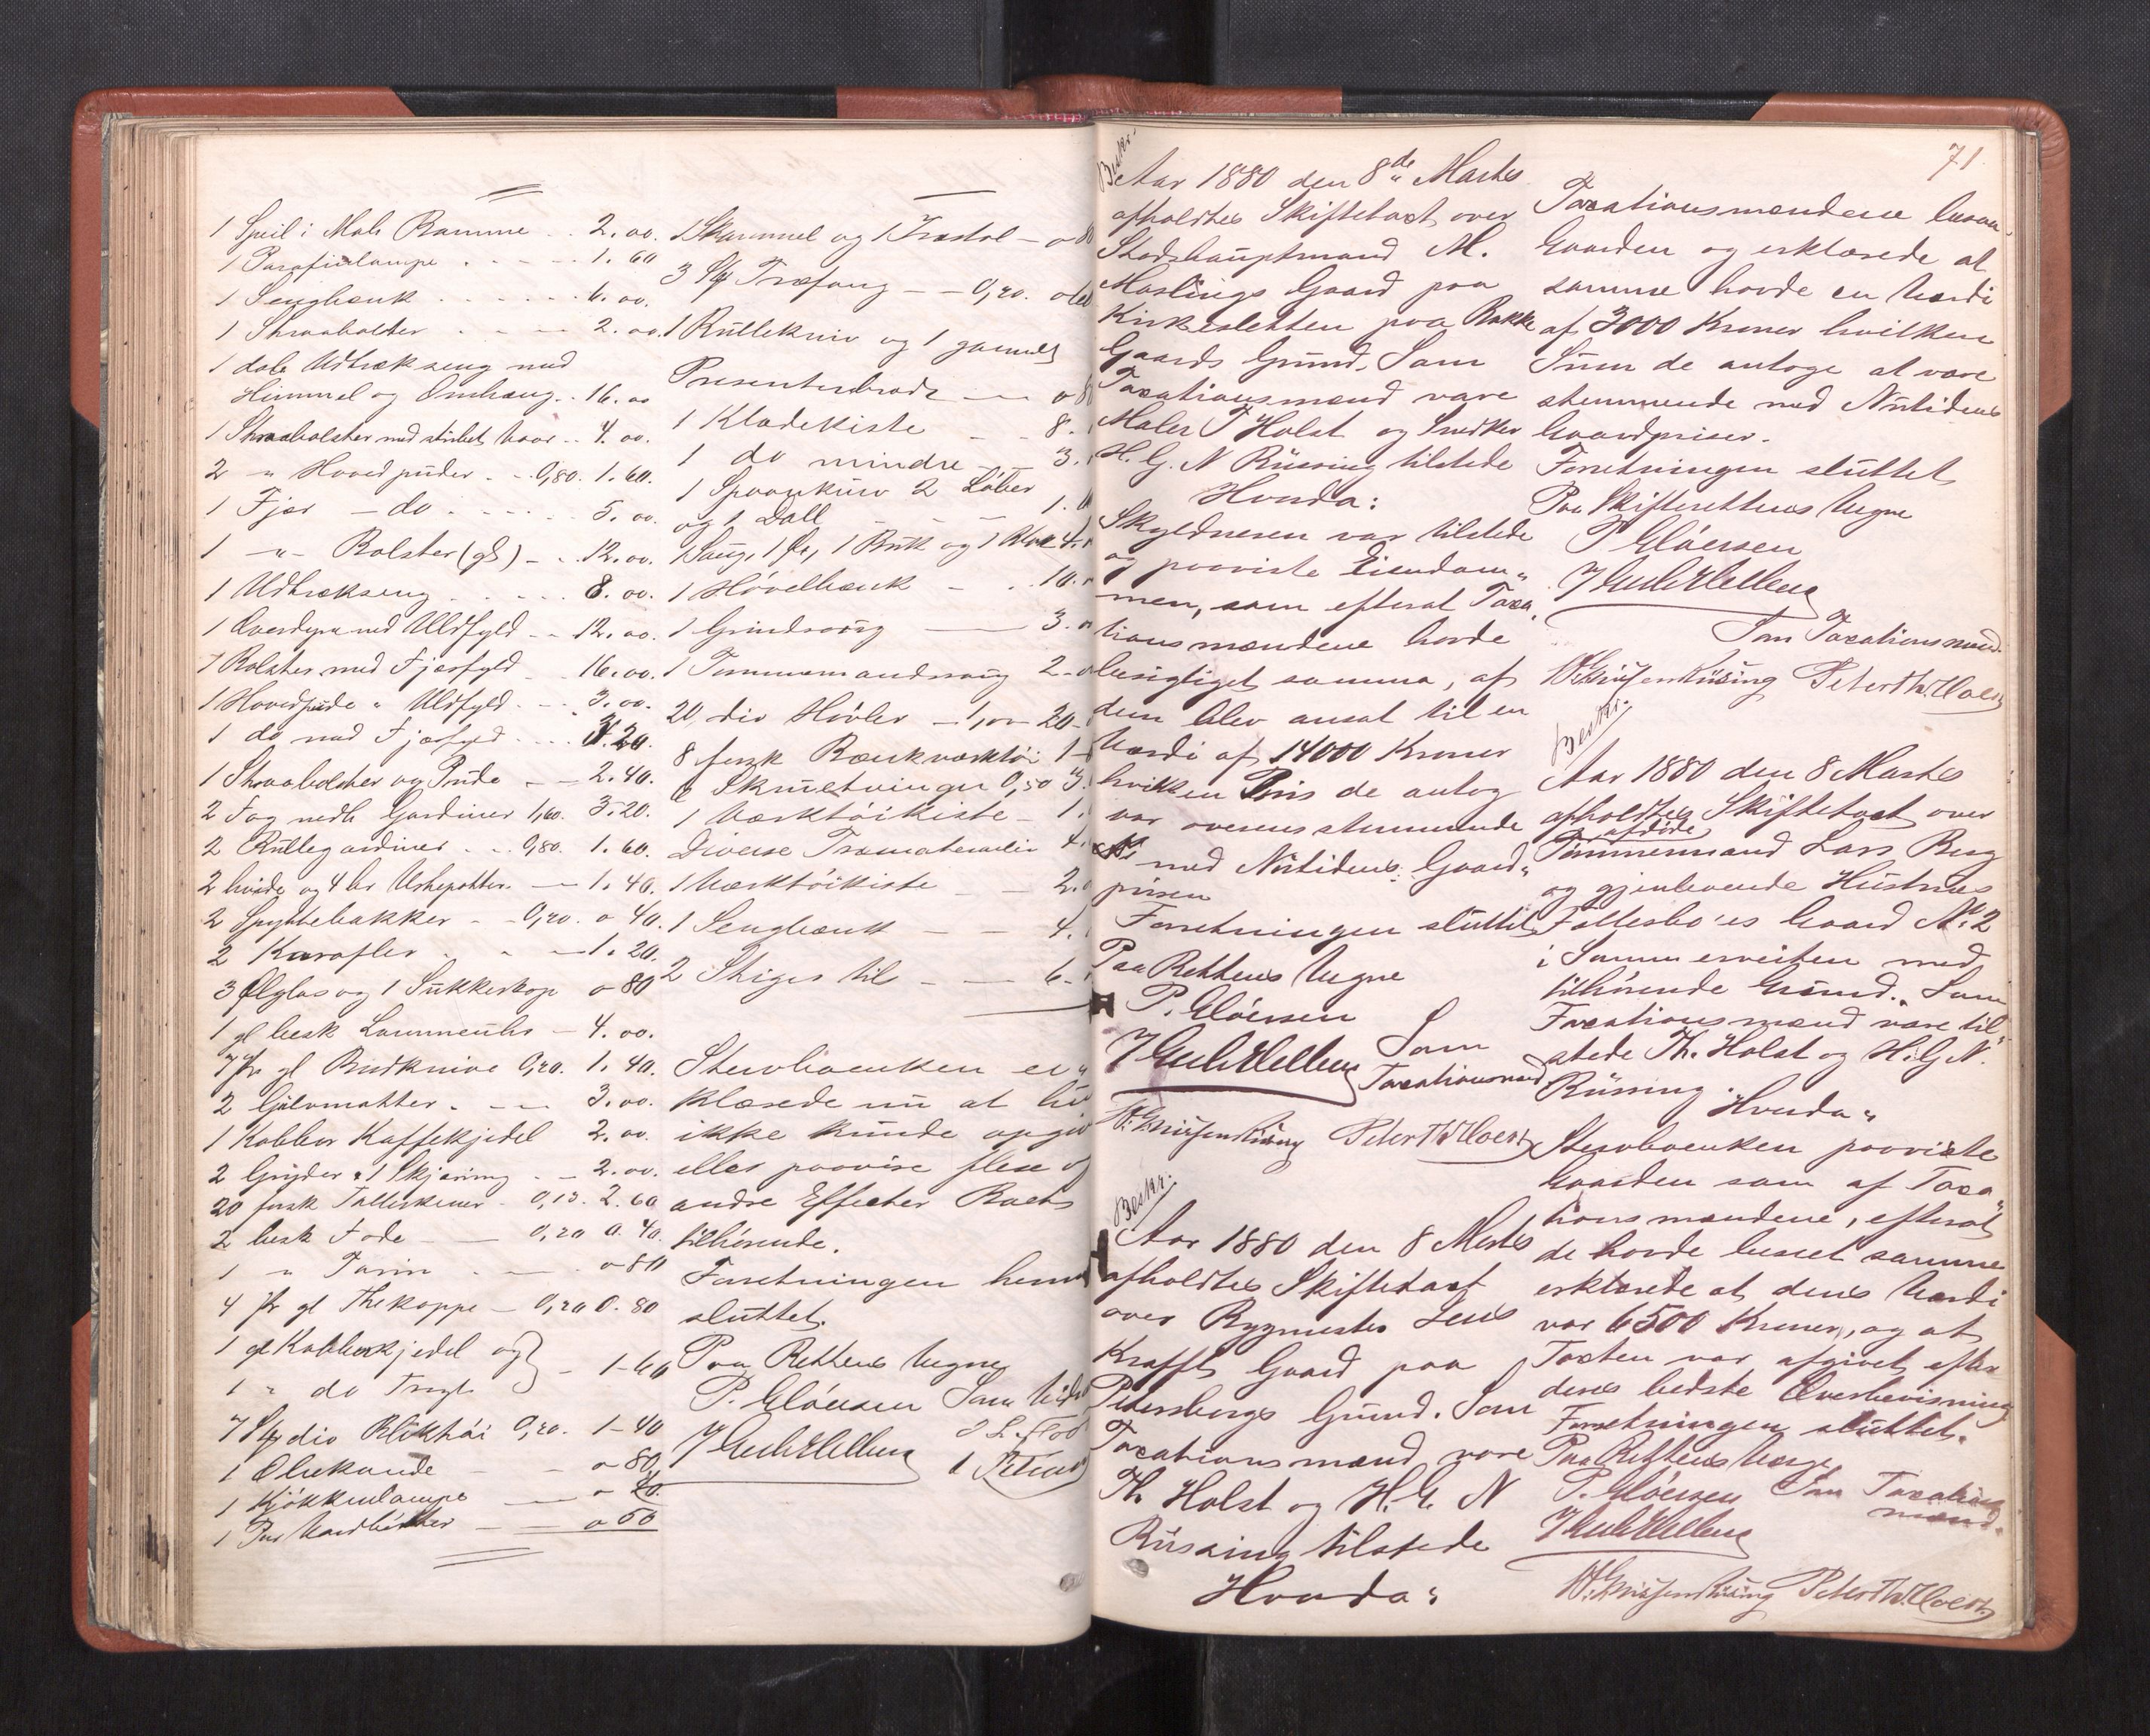 1 Speil i Mah Ramme .. 2.00.
1 Parafinlampe . . . . 1.60
1 Sengbænk . . . . . . 6.00.
1 Straabolster . . . — 2.00.
1 dob Udtræksseng med
Himmel og Omhæng .. 16.00
1 Straabolster med Haar .. 4.00.
2 — " Hovedpuder . . 0,80. 1.60.
1 Fjær — do . . . . . . 5.00.
1 — " — Bolster (gl) — .. 12.00.
1 Udtræksseng . . . . . 8.00.
1 Overdyne med Uldfyld .. 12.00.
1 Bolster med Fjærfyld 16.00.
1 Hovedpude " Uldfyld . . 3.00.
1 do med Fjærfyld . . . 3.20.
1 Straabolster og Pude — — 2.40.
2 Fag nedh Gardiner 1,60. 3.20.
2 Rullegardiner . . 0,80. 1.60.
2 hvide og 4 br Urtepotter. — 1.40.
2 Spyttebakker — 0,20. 0 40.
2 Karafler . . . — 1.20.
3 Ølglas og 1 Sukkerkop 0 80
1 gl besk Lommeuhr — 4.00.
7 Pr gl Bordknive 0,20. 1.40.
2 Gulvmatter . . — 3.00.
1 Kobber Kaffekjedel 2.00.
2 Gryder & 1 Skjæring . — 2.00.
20 forsk Tallerkener . 0,13. 2.60
2 besk Fade — — 0,20 0.40.
1 " Tarin . — . 0 80
4 Pr gl Thekoppe — 0,20 0.80
1 gl Kobberkjedel og
1 " do Tragt — 1-60
7 Stk div Bliktøi 0,20. 1-40
1 Oliekande — — 0 80
1 Kjøkkenlampe — 0 40.
1 Par Vandbøtter — — 0 60
1 Skammel og 1 Træstol — 0 80
3 Stk Træfang — — 0,20. 0 60
1 Rullekniv og 1 gammelt
Presenterbræt — — 0 80
1 Klædekiste — — 8.
1 do mindre 3.
1 Spaankurv 2 Løber
og 1 Dall — — — 1.
1 Saug, 1 Øx, 1 Buk og 1 4.
1 Høvelbænk — . 10.
1 Grindsaug — 3.
1 Tommermandssaug 2-0
20 div Høvler — 1,00 20-
8 forsk Bænkværktøi 1-
6 Skruetvinger 0,50 3.
1 Værktøikiste — 1.
Diverse Træmaterialier 4.
1 Værktøikiste — — 2.0
1 Sengbænk — — 4.
2 Stiger til — — 6-
Stervboenken er"
klærede nu at hun
ikke kunde opgive
eller paavise flere og
andre Effecter Boets
tilhørende.
Forretningen hermed
sluttet.
Paa Rettens Vegne
P. Gløersen Som Vidner
71.
Beskr.
Aar 1880 den 8de Martes
afholdtes Skiftetaxt over
Stadshauptmand M.
Mastings Gaard paa
Kirkesletten paa Bakke
Gaards Grund. Som
Taxationsmænd vare
Maler T Holst og Snedker
H. G. N Rüssing tilstede
Hvorda:
Skyldneren var tilstede
og paaviste Eiendom"
men, som efterat Taxa"
tionsmændene havde
besigtiget samme, af
dem blev ansat til en
Værdi af 14000 Kroner
hvilken Pris de antog
var overensstemmende
med Nutidens Gaard"
prisen
Forretningen sluttet
Paa Rettens Vegne
P. Gløersen
Som
Taxationsmænd
Peter Th. Holst
Beskr.
Aar 1880 den 8 Martes
afholdtes Skiftetaxt
over Bygmester Jens
Kraffts Gaard paa
Petersborgs Grund. Som
Taxationsmænd vare
Th. Holst og H. G. N
Rüssing tilstede
Hvorda:
Taxationsmændene besaa
Gaarden og erklærede at
samme havde en Værdi
af 3000 Kroner hvilken
Sum de antoge at være
stemmende med Nutidens
Gaardpriser.
Forretningen sluttet
Paa Skifterettens Vegne
P Gløersen
Som Taxationsmænd.
Peter Th. Holst
Beskr.
Aar 1880 den 8 Martes
afholdtes Skiftetaxt over
afdøde
Tømmermand Lars Berg
og gjenlevende Hustrues
Fællesbo'es Gaard No 2
i Sommerveiten med
tilhørende Grund. Som
Taxationsmænd vare til"
stede Th. Holst og H. G N.
Rüssing. Hvorda"
Stervboenken paaviste
Gaarden som af Taxa"
tionsmændene, efterat
de havde beseet samme
erklærede at dens Værdi
var 6500 Kroner, og at
Taxten var afgivet efter
deres bedste Overbevisning
Forretningen sluttet.
Paa Rettens Vegne
P. Gløersen Som Taxations
mænd.
Peter Th. Holst